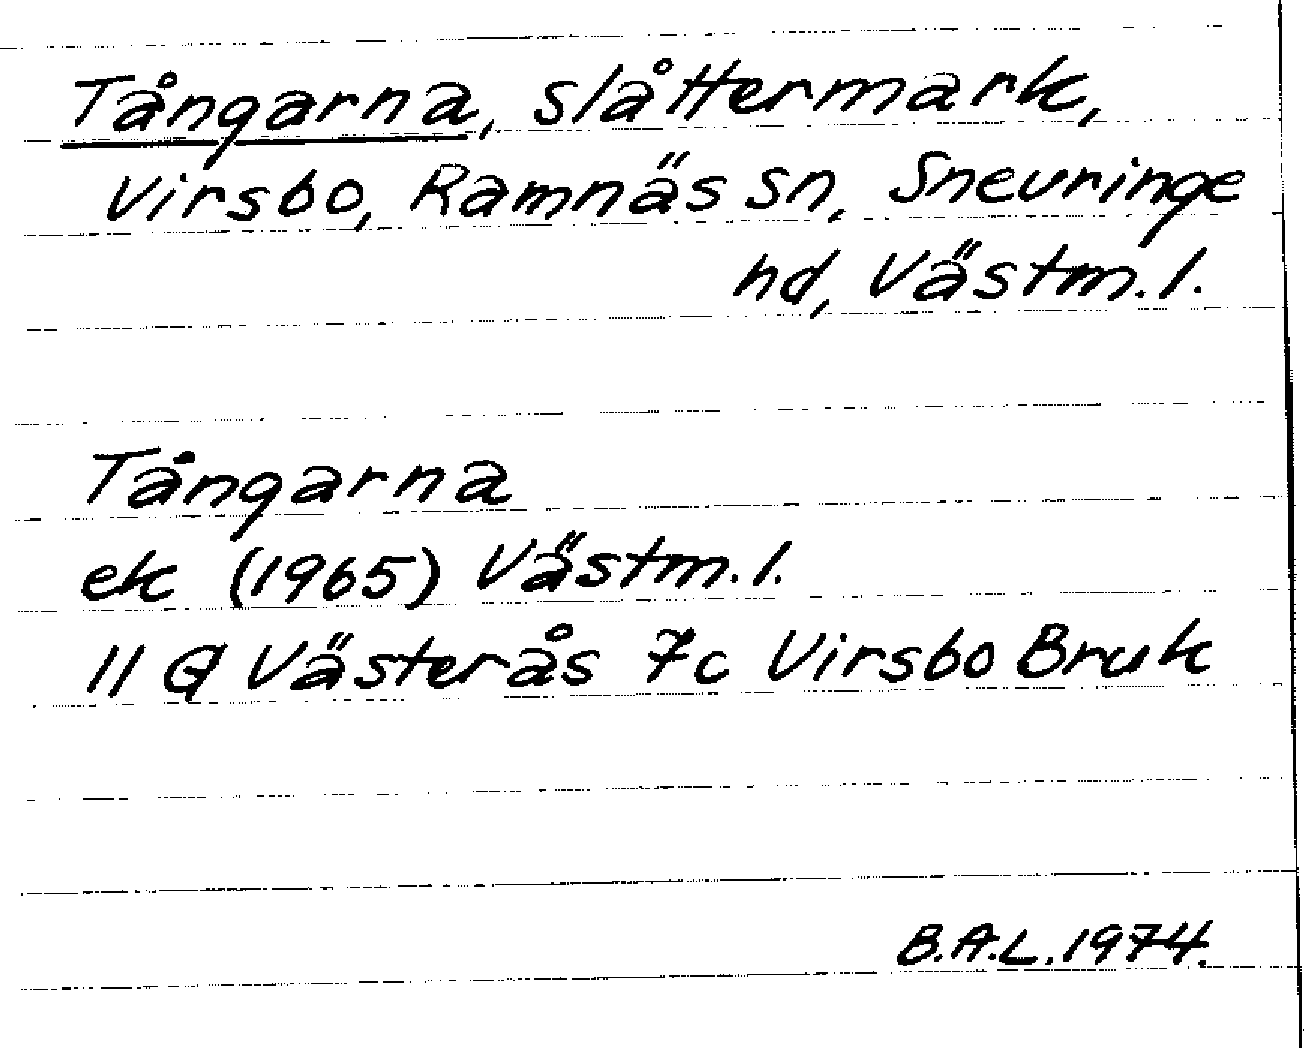 Tångarna, slåttermark,
Virsbo, Ramnäs sn, Snevringe
hd, Västm.l.
Tångarna
ek (1965) Västm.l.
11 G Västerås 7c Virsbo Bruk
B.A.L. 1974.